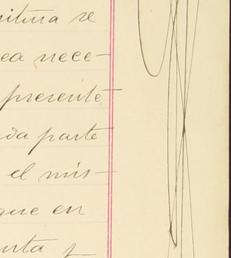 nitura se
ea nece-
presente
da parte
el mis-
que en